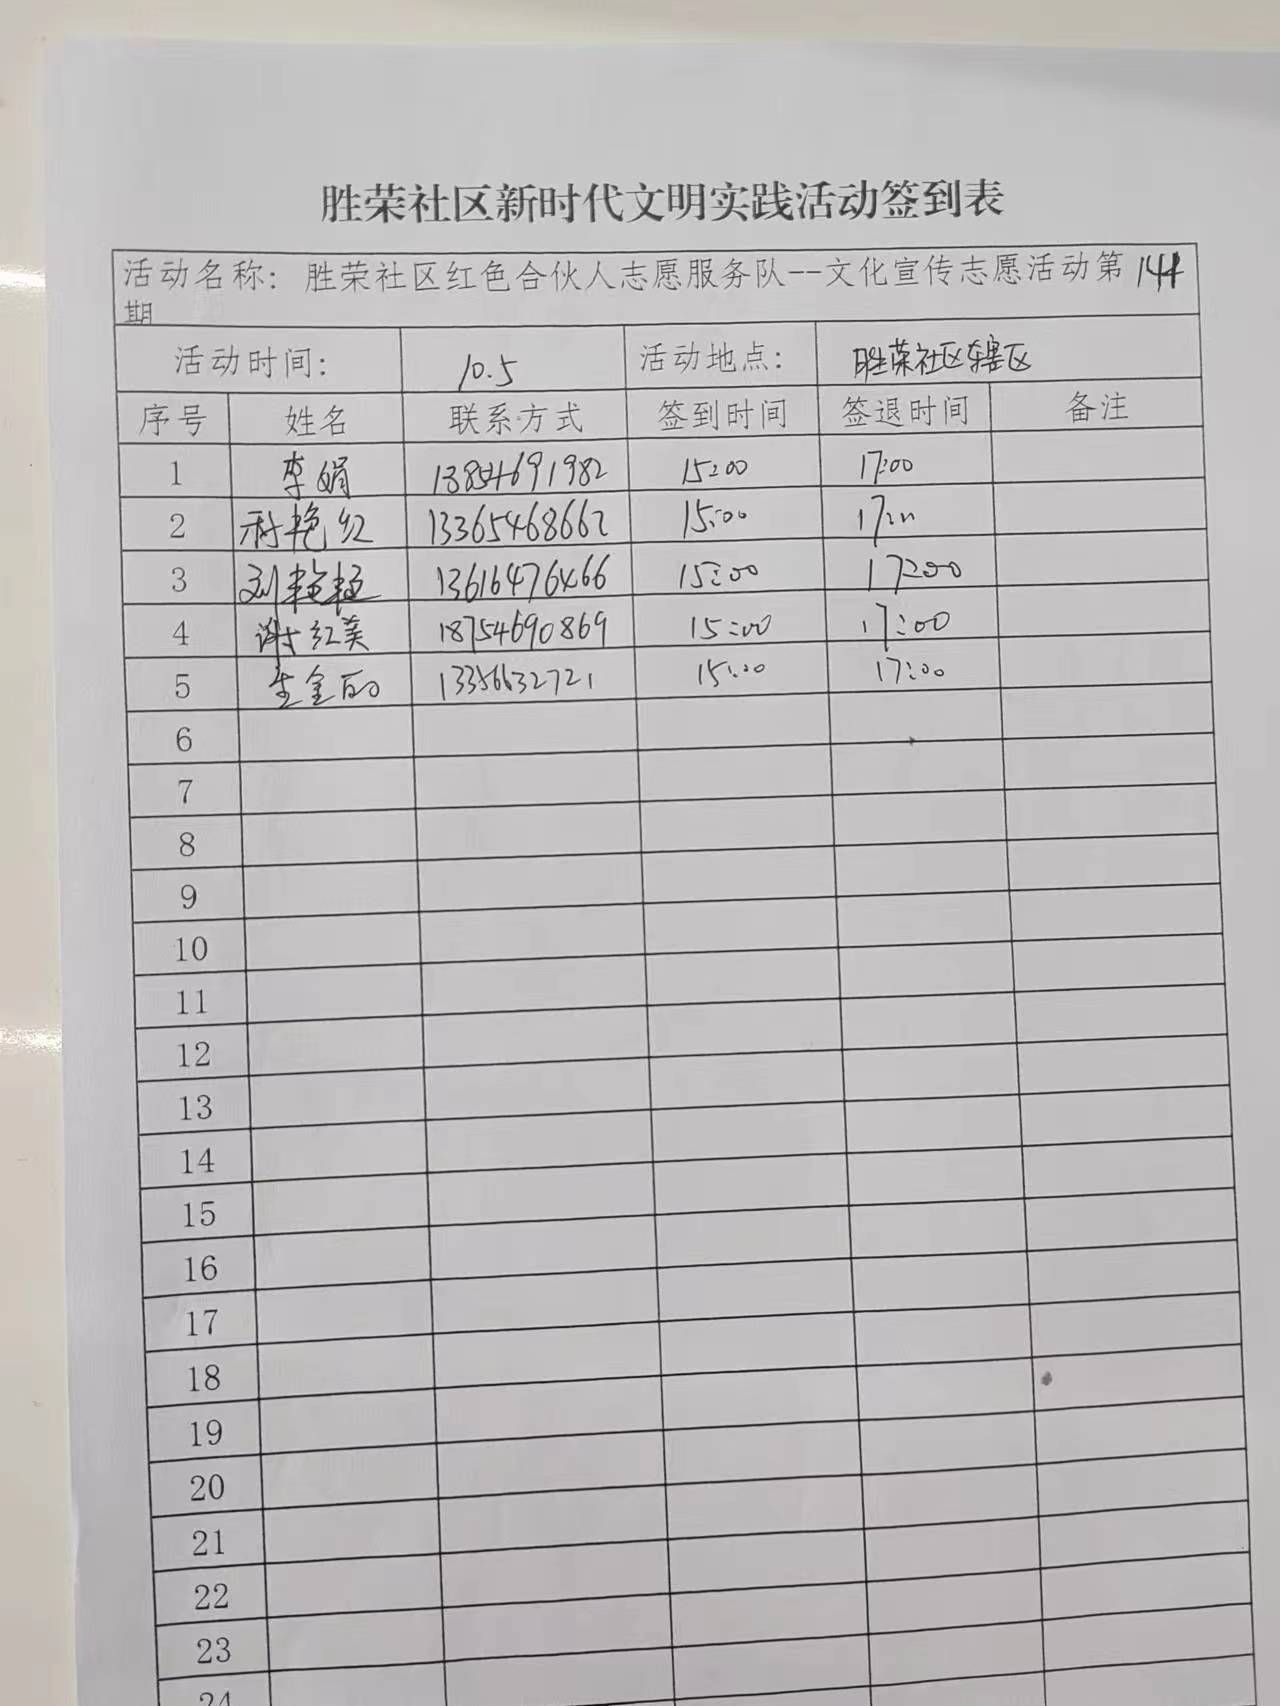 胜荣社区新时代文明实践活动签到表
活动名称：胜荣社区红色合伙人志愿服务队--文化宣传志愿活动第144
期
活动时间： 10.5 活动地点： 胜荣社区辖区
序号 姓名 联系方式 签到时间 签退时间 备注
1 李娟 13854691982 15:00 17:00
2 艳红 13365468662 15:00 17:00
3 刘艳 13616476466 15:00 17:00
4 谢红美 18754690869 15:00 17:00
5 金 13356632721 15:00 17:00
6
7
8
9
10
11
12
13
14
15
16
17
18
19
20
21
22
23
24